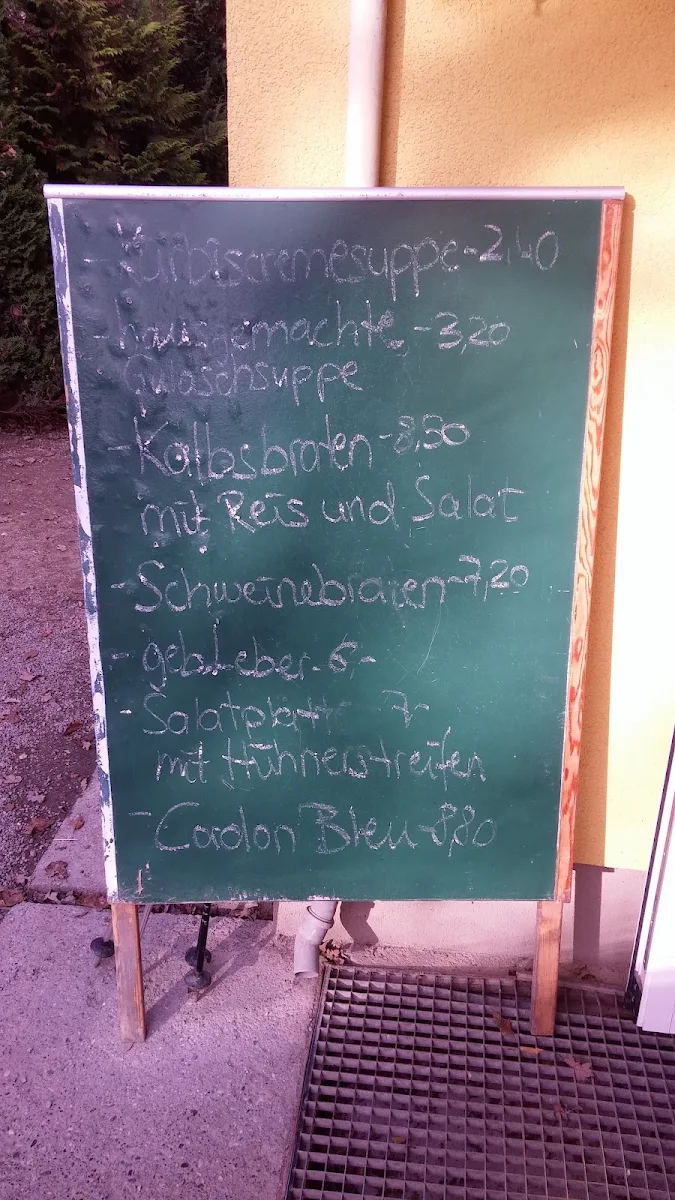 - Kürbiscremesuppe - 2,40
- hausgemachte - 3,20
Gulaschsuppe
- Kalbsbraten - 8,50
mit Reis und Salat
- Schweinebraten - 7,20
- geb. Leber - 6,-
- Salatplatte 7,-
mit Hühnerstreifen
- Cordon Bleu - 8,80